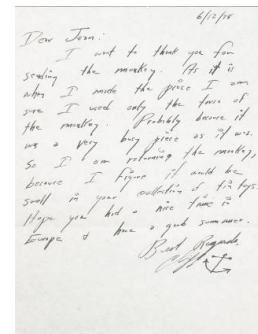 6/12/78
Dear Joan:
I want to thank you for
sending the monkey. As it is
when I made the piece I am
sure I used only the face of
the monkey. Probably because it
was a very busy piece as it was.
So I am returning the monkey,
because I figure it could be
swell in your collection of tin toys.
Hope you had a nice time in
Europe & have a great summer.
Best Regards,